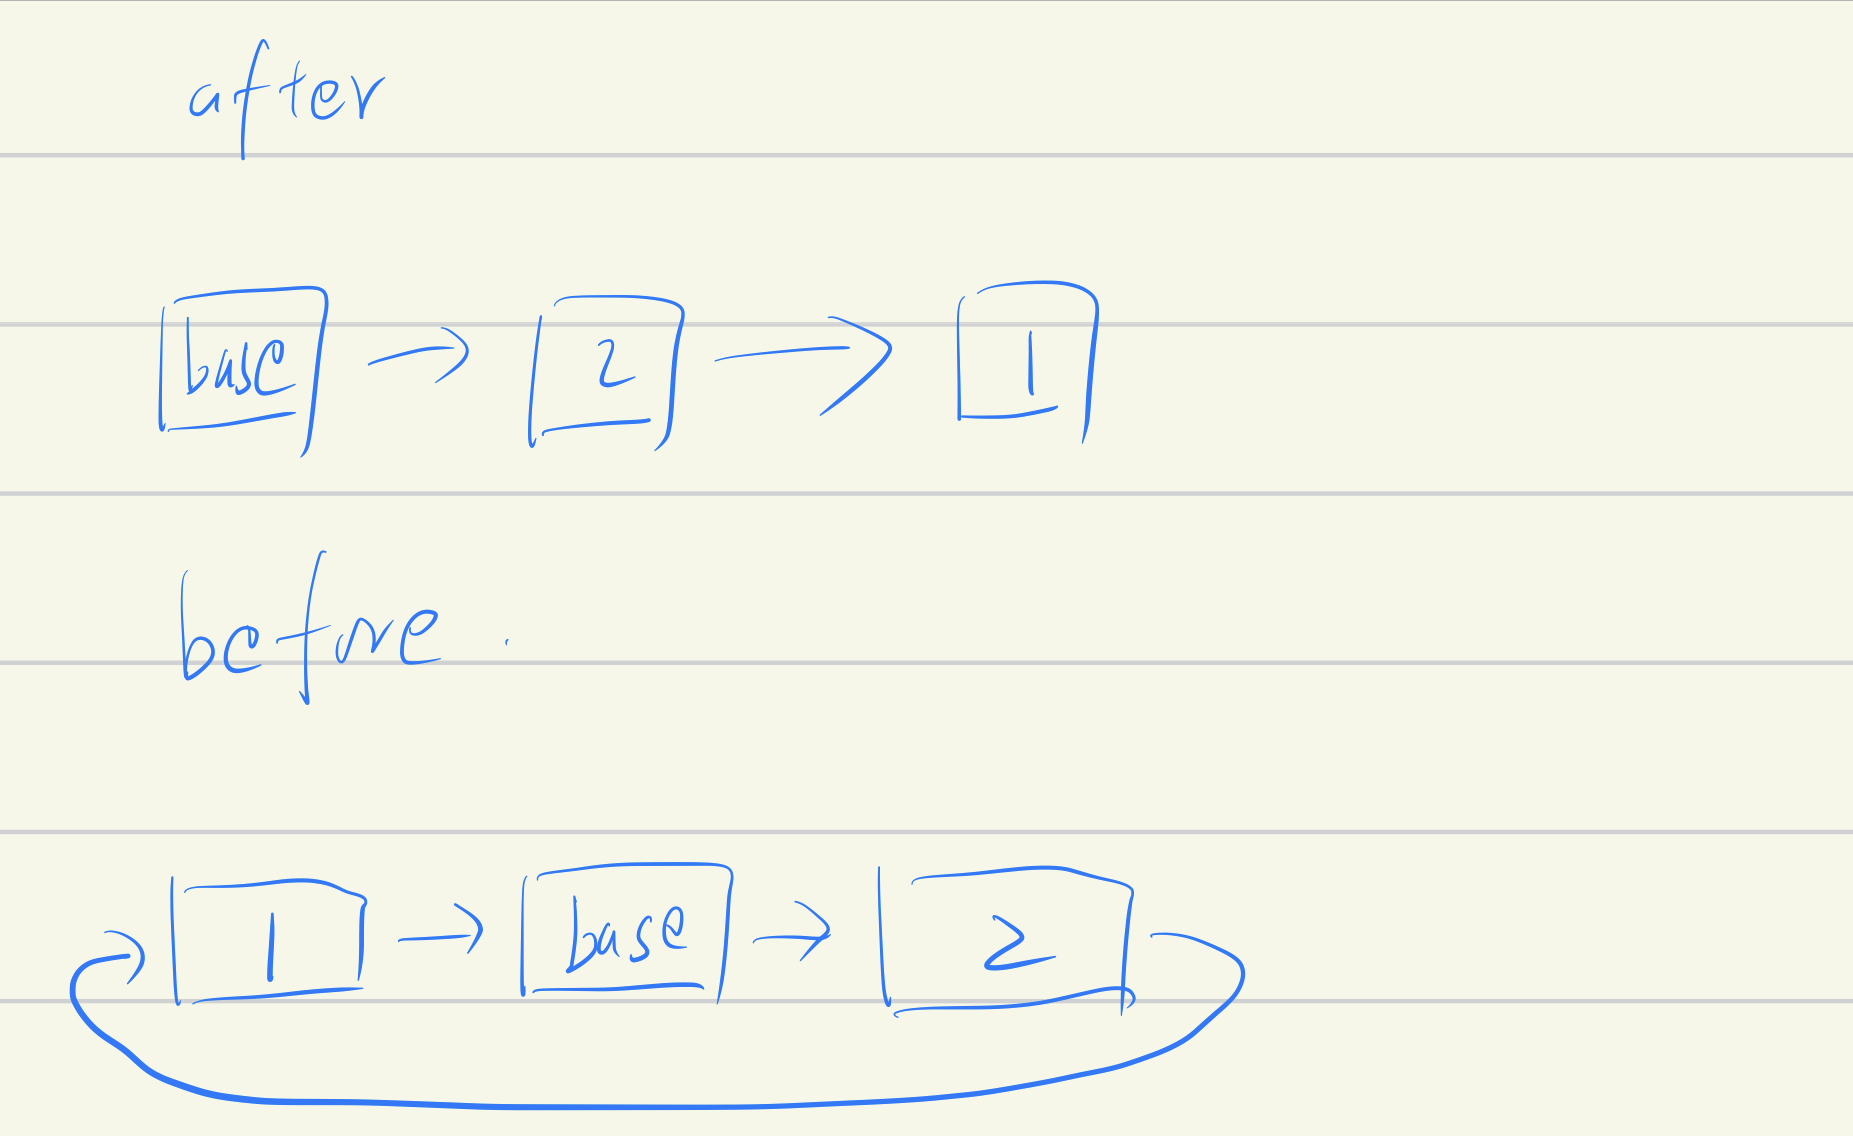 after
base → 2 → 1
before.
1 → base → 2